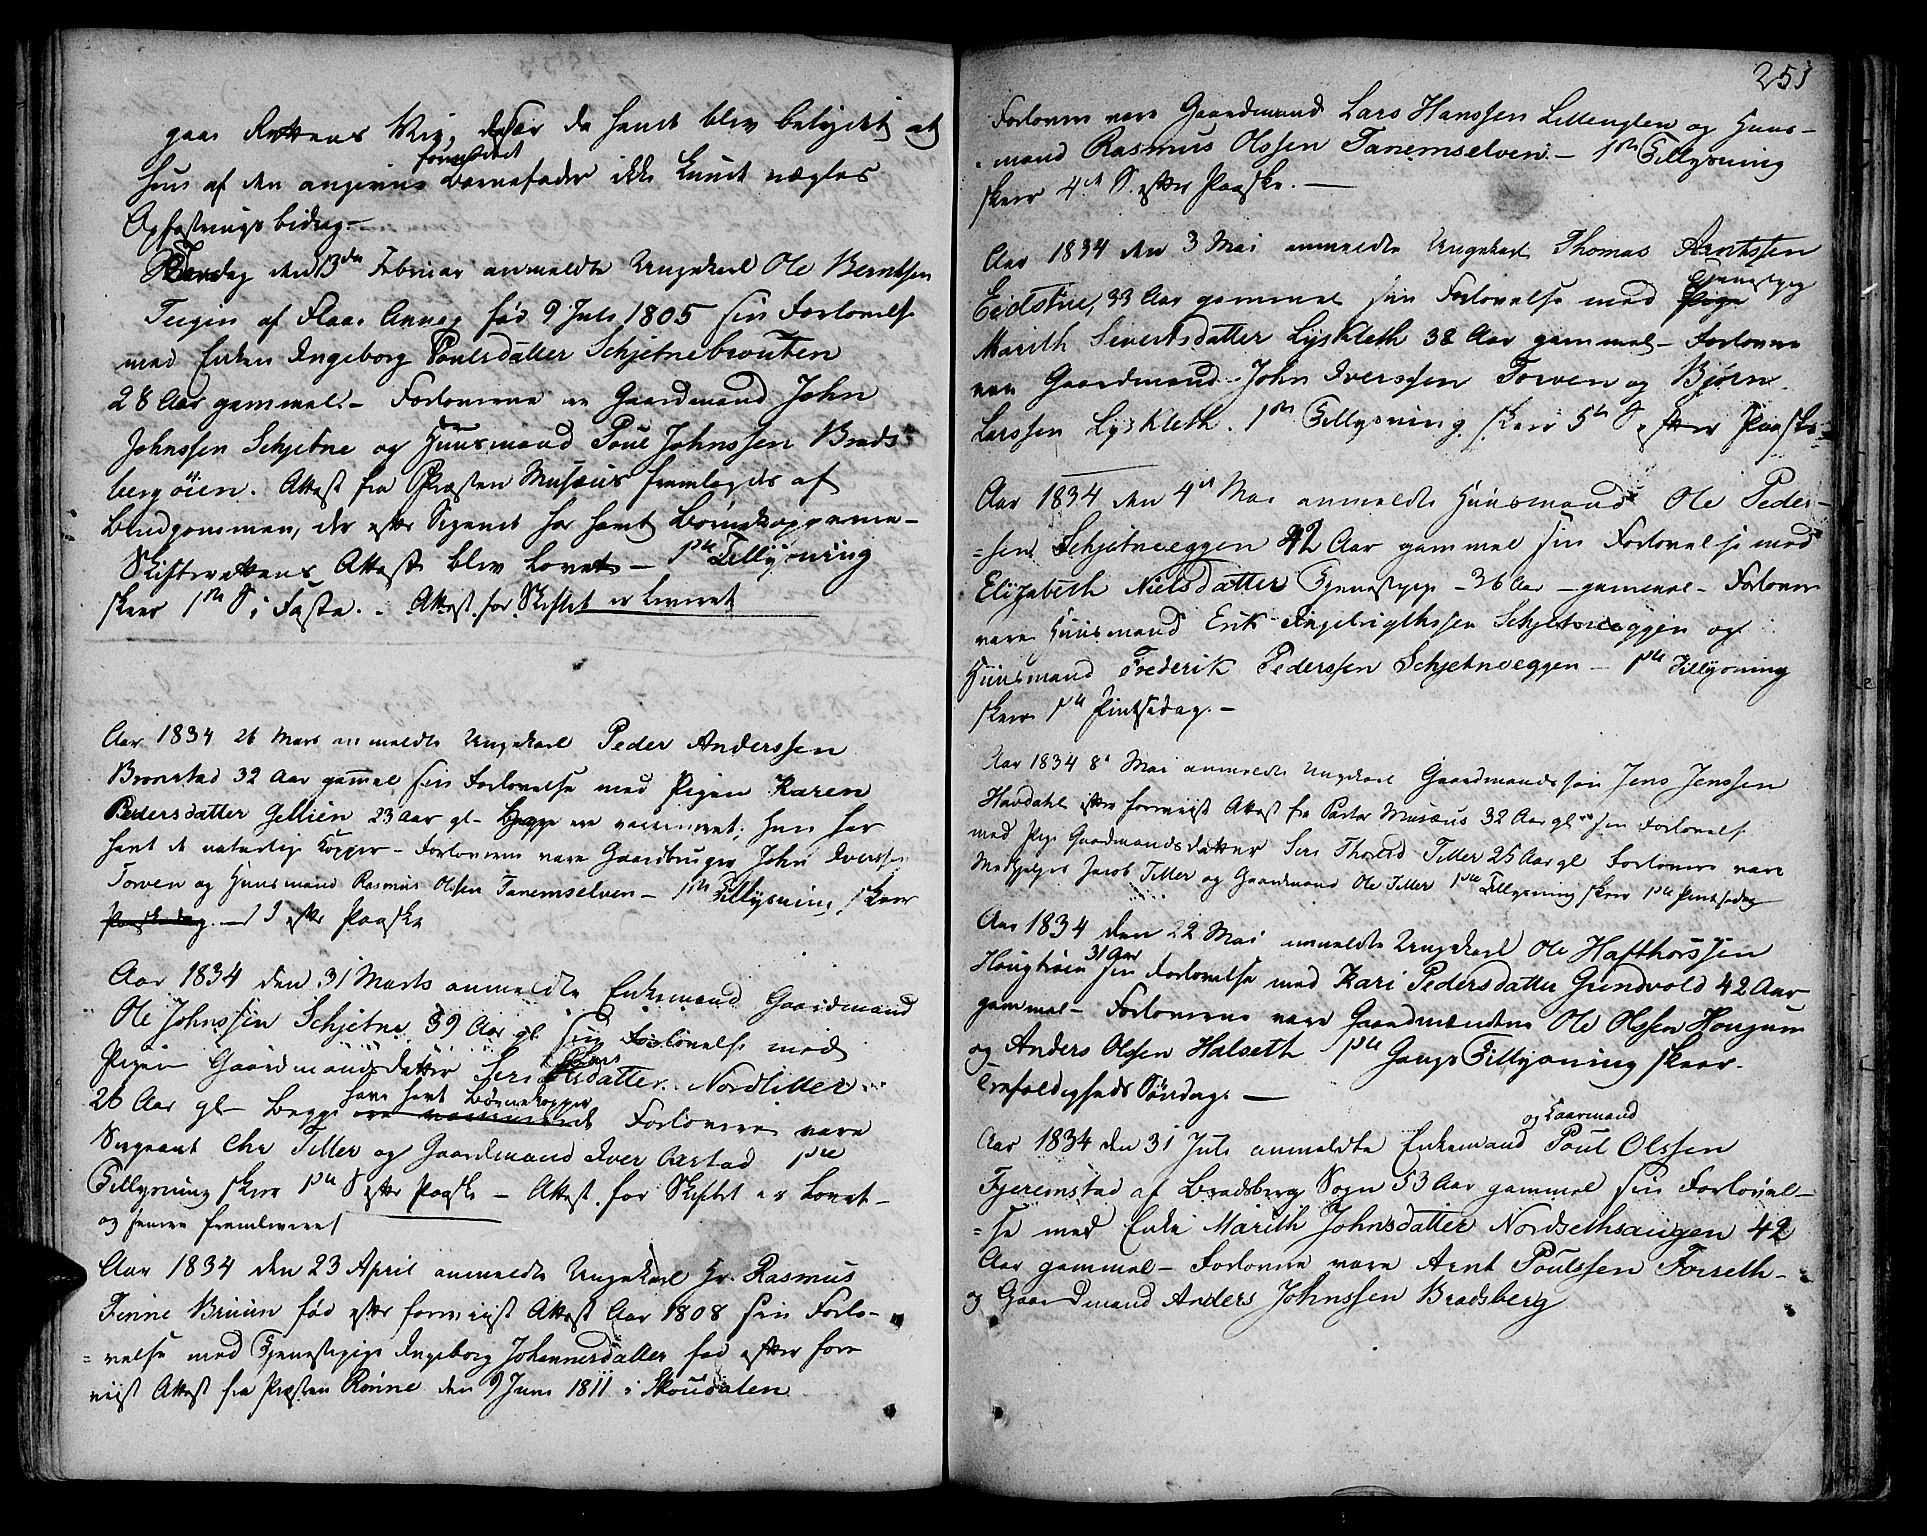 gaae Rettens Vei, da hendt blev belydet at
hun af den angivne formeldet Barnefader ikke kunde nægtes
Opfostringsbidrag.-
Torsdag den 13de Februar anmeldte Ungekarl Ole Berntsen
Teigen af Flaa Annex fød 9 Juli 1805 sin Forlovelse
med Enken Ingeborg Poulsdatter Schjetnebrouten
28 Aar gammel. - Forloverne er Gaardmand John
Johnssen Schjetne og Huusmand Poul Johnssen Brads
bergöien. Attest fra Præsten Musæus fremlagdes af
Brudgommen, der efter Sigende har havt Börnekopperne -
Skifterettens Attest blev lovet - 1ste Tillysning
skeer 1ste S i Faste. - Attest for Skiftet er leveret
Aar 1834 26 Mars anmeldte Ungekarl Peder Anderssen
Bronstad 32 Aar gammel sin Forlovelse med Pigen Karen
Pedersdatter Gellien 23 Aar gl - Begge ere vaccineret; hun har
havt de naturlige Kopper - Forloverne vare Gaardbruger John Iverssen
Torven og Huusmand Rasmus Olssen Tanemselven - 1ste Tillysning skeer
Paaskedag. - 1 S efter Paaske
Aar 1834 den 31 Marts anmeldte Enkemand Gaardmand
Ole Johnssen Schjetne 39 Aar gl sin Forlovelse med
Pigen Gaardmandsdatter Seri Larsdatter Nordtiller
26 Aar gl - Begge have havt Börnekopper ere vaccineret Forloverne vare
Sergeant Chr Tiller og Gaardmand Iver Aestad 1ste
Tillysning skeer 1ste S efter Paaske - Attest for Skiftet er lovet -
og senere fremleveret
Aar 1834 den 23 April anmeldte Ungekarl Hr. Rasmus
Finne Bruun fød efter foreviist Attest Aar 1808 sin Forlo-
velse med Tjenestepige Ingeborg Johannesdatter fød efter fore
viist Attest fra Præsten Rönne den 9 Juni 1811 i Skoudalen
251
Forlovere vare Gaardmand Lars Hanssen Lillenglen og Huus-
mand Rasmus Olssen Tanemselven. - 1ste Tillysning
skeer 4de S. efter Paaske. -
Aar 1834 den 3 Mai anmeldte Ungekarl Thomas Arntssen
Eidstue, 33 Aar gammel sin Forlovelse med Pige Tjenestepige
Marith Sivertsdatter Lyskleth 38 Aar gammel - Forlovere
var Gaardmand John Iverssen Torven og Björn
Larssen Lyskleth. 1ste Tillysning skeer 5te S efter Paaske -
Aar 1834 den 4de Mai anmeldte Huusmand Ole Peder-
-sen Schjetneeggen 42 Aar gammel sin Forlovelse med
Elisabeth Nielsdatter Tjenestepige - 36 Aar - gammel - Forlovere
vare Huusmand Erik Engebrigthssen Schjetneeggen og
Huusmand Frederik Pederssen Schjetneeggen - 1ste Tillysning
skeer 1ste Pintsedag. -
Aar 1834 8de Mai anmeldte Ungekarl Gaardmandssön Jens Jenssen
Havdahl efter foreviist Attest fra Pastor Musæus 32 Aar gl sin Forlovelse
med Pige Gaardmandsdatter Seri Thorsd Tiller 25 Aar gl Forlovere vare
Medhjelper Jacob Tiller og Gaardmand Ole Tiller 1ste Tillysning skeer 1ste Pintsedag
Aar 1834 den 22 Mai anmeldte Ungekarl Ole Hafthorssen
Hougtröen 31 Aar sin Forlovelse med Kari Pedersdatter Grendvold 42 Aar
gammel - Forloverne vare Gaardmændene Ole Olssen Hougum
og Anders Olssen Halseth 1ste Gangs Tillysning skeer
Trefoldigheds Söndag. -
Aar 1834 den 31 Juli anmeldte Enkemand og Kaarmand Poul Olssen
Fjeremstad af Bradsberg Sogn 53 Aar gammel sin Forlovel-
-se med Enke Marith Johnsdatter Nordsethsaugen 42
Aar gammel - Forlovere vare Arnt Poulssen Forseth -
og Gaardmand Anders Johnssen Bradsberg